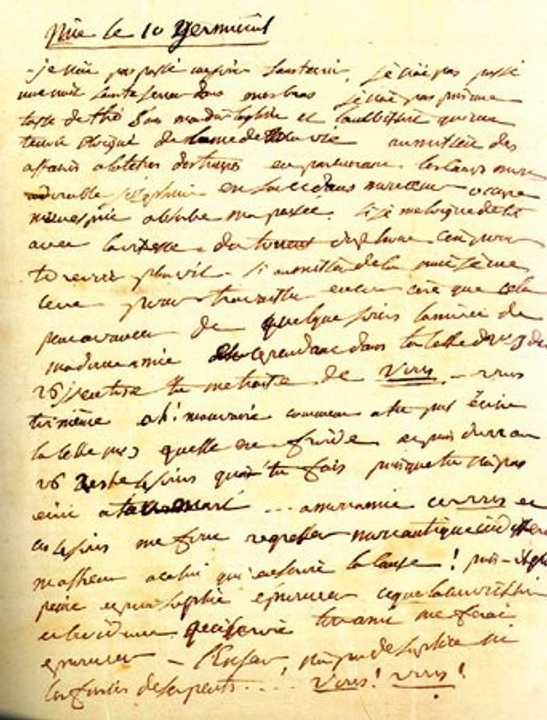 Nice le 10 Germinal
je n'ai pas passé un jour sans t'aimer, je n'ai pas passé
une nuit sans te serrer dans mes bras je n'ai pas pris une
tasse de thé sans maudire la gloire et l'ambition qui me
de l'ame de ma vie au milieu des
affaires a la tete des troupes en parcourant les camps mon
adorable josephine est seule dans mon coeur occupe
mon esprit absorbe ma pensée. Si je m'eloigne de toi
avec la vitesse du torrent du rhone c'est pour
te revoir plus vite. Si au milieu de la nuit je me
leve pour travailler encore c'est que cela
peut avancer de quelques jours l'arrivée de
ma douce amie dans ta lettre du
26 ventose tu me traite de vous. - vous
toi même ah! mauvaise comment a tu pu écrire
cette lettre quelle est froide et puis du 23 au
26 reste 4 jours qu'a tu fais puisque tu n'a pas
écrit a ton mari ... a mon amie ce vous et
ces 4 jours me font regretter mon antique
malheur a celui qui en serait la cause!
peine et pour suplice éprouver ce que la conviction
et l'evidence ton ami me ferai
éprouver - l'Enfer n'a pas de suplice ni
les furies de serpents....! Vous! vous!